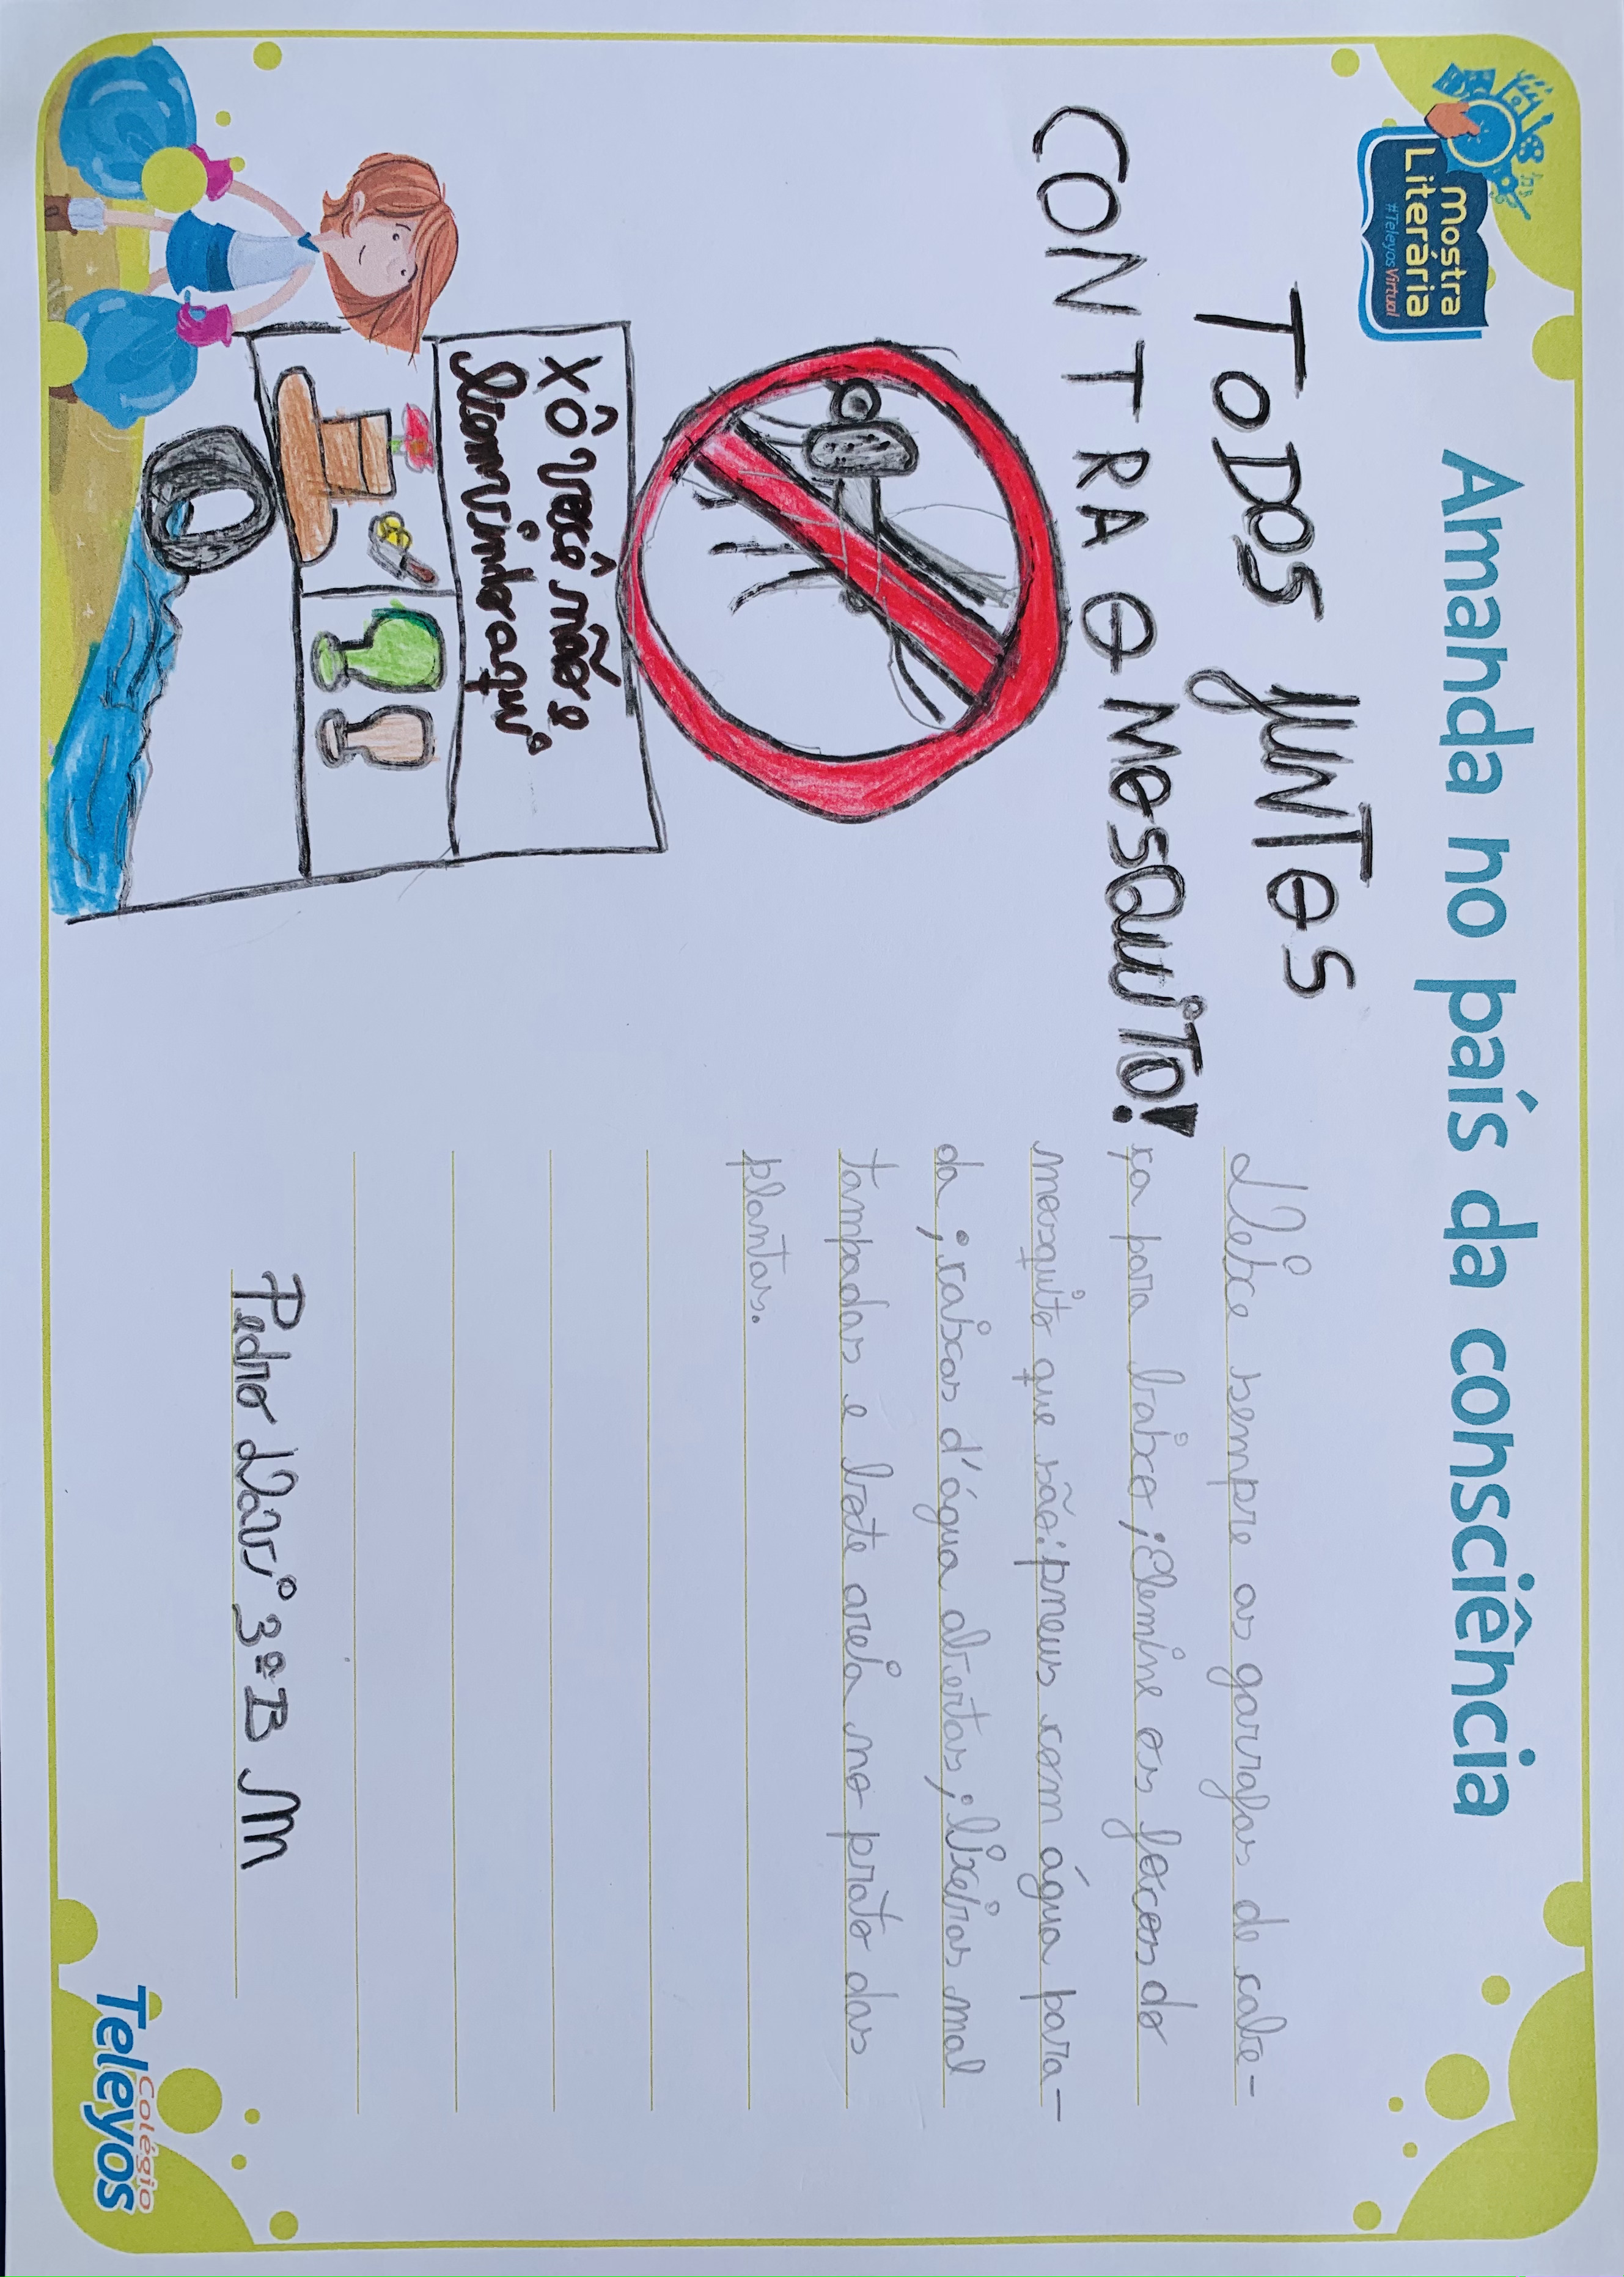 Mostra
Literária
#TeleyosVirtual
Amanda no país da consciência
TODOS JUNTOS
CONTRA O MOSQUITO!
XÔ você não e
biemvindo aqui
Deixe sempre as garrafas de cabe-
ça para baixo; Elemine os fócos do
mosquito que são: pneus com água para-
da; caixas d'água abertas; lixeiras mal
tampadas e bote areia no prato das
plantas.
Pedro Davi 3º B M
Colégio
Teleyos